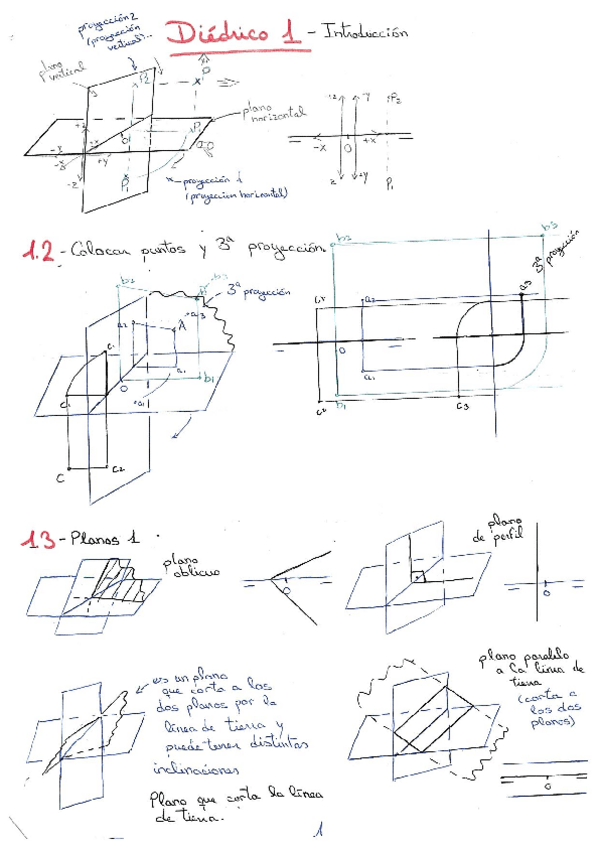 Diédrico 1 - Introducción
proyección 2
(proyección
vertical)...
plano
vertical
plano
horizontal
proyección 1
(proyección horizontal)
P2
P1
+z
-z
-x
+x
+y
-y
O
1.2 - Colocar puntos y 3ª proyección.
3ª proyección
A
a2
a1
a3
b2
b1
b3
c1
c2
C
O
3ª proyección
b2
b3
a2
a3
a1
b1
c3
O
1.3 - Planos 1
plano
oblicuo
O
plano
de perfil
O
es un plano
que corta a los
dos planos por la
línea de tierra y
puede tener distintas
inclinaciones
Plano que corta la línea
de tierra.
plano paralelo
a la línea de
tierra
(corta a
los dos
planos)
O
1